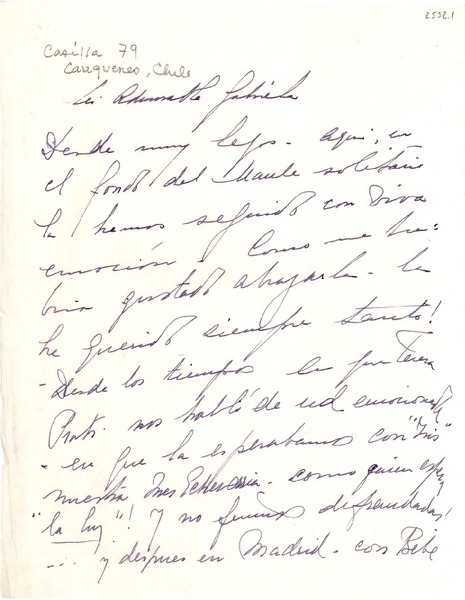 2552.1
Casilla 79
Cauquenes, Chile
Mi Admirable Gabriela
Desde muy lejos - aquí, en
el fondo del Maule solitario
la hemos seguido con viva
emoción! Como me hu=
biera gustado abrazarla - la
he querido siempre tanto!
- Desde los tiempos en que Teresa
Prats nos habló de ud emocionada
- en que la esperabamos con "Iris"
nuestra Ines Echeverria - como quien espera
"la luz"! Y no fuimos defraudadas!
... y despues en Madrid - con Bebé